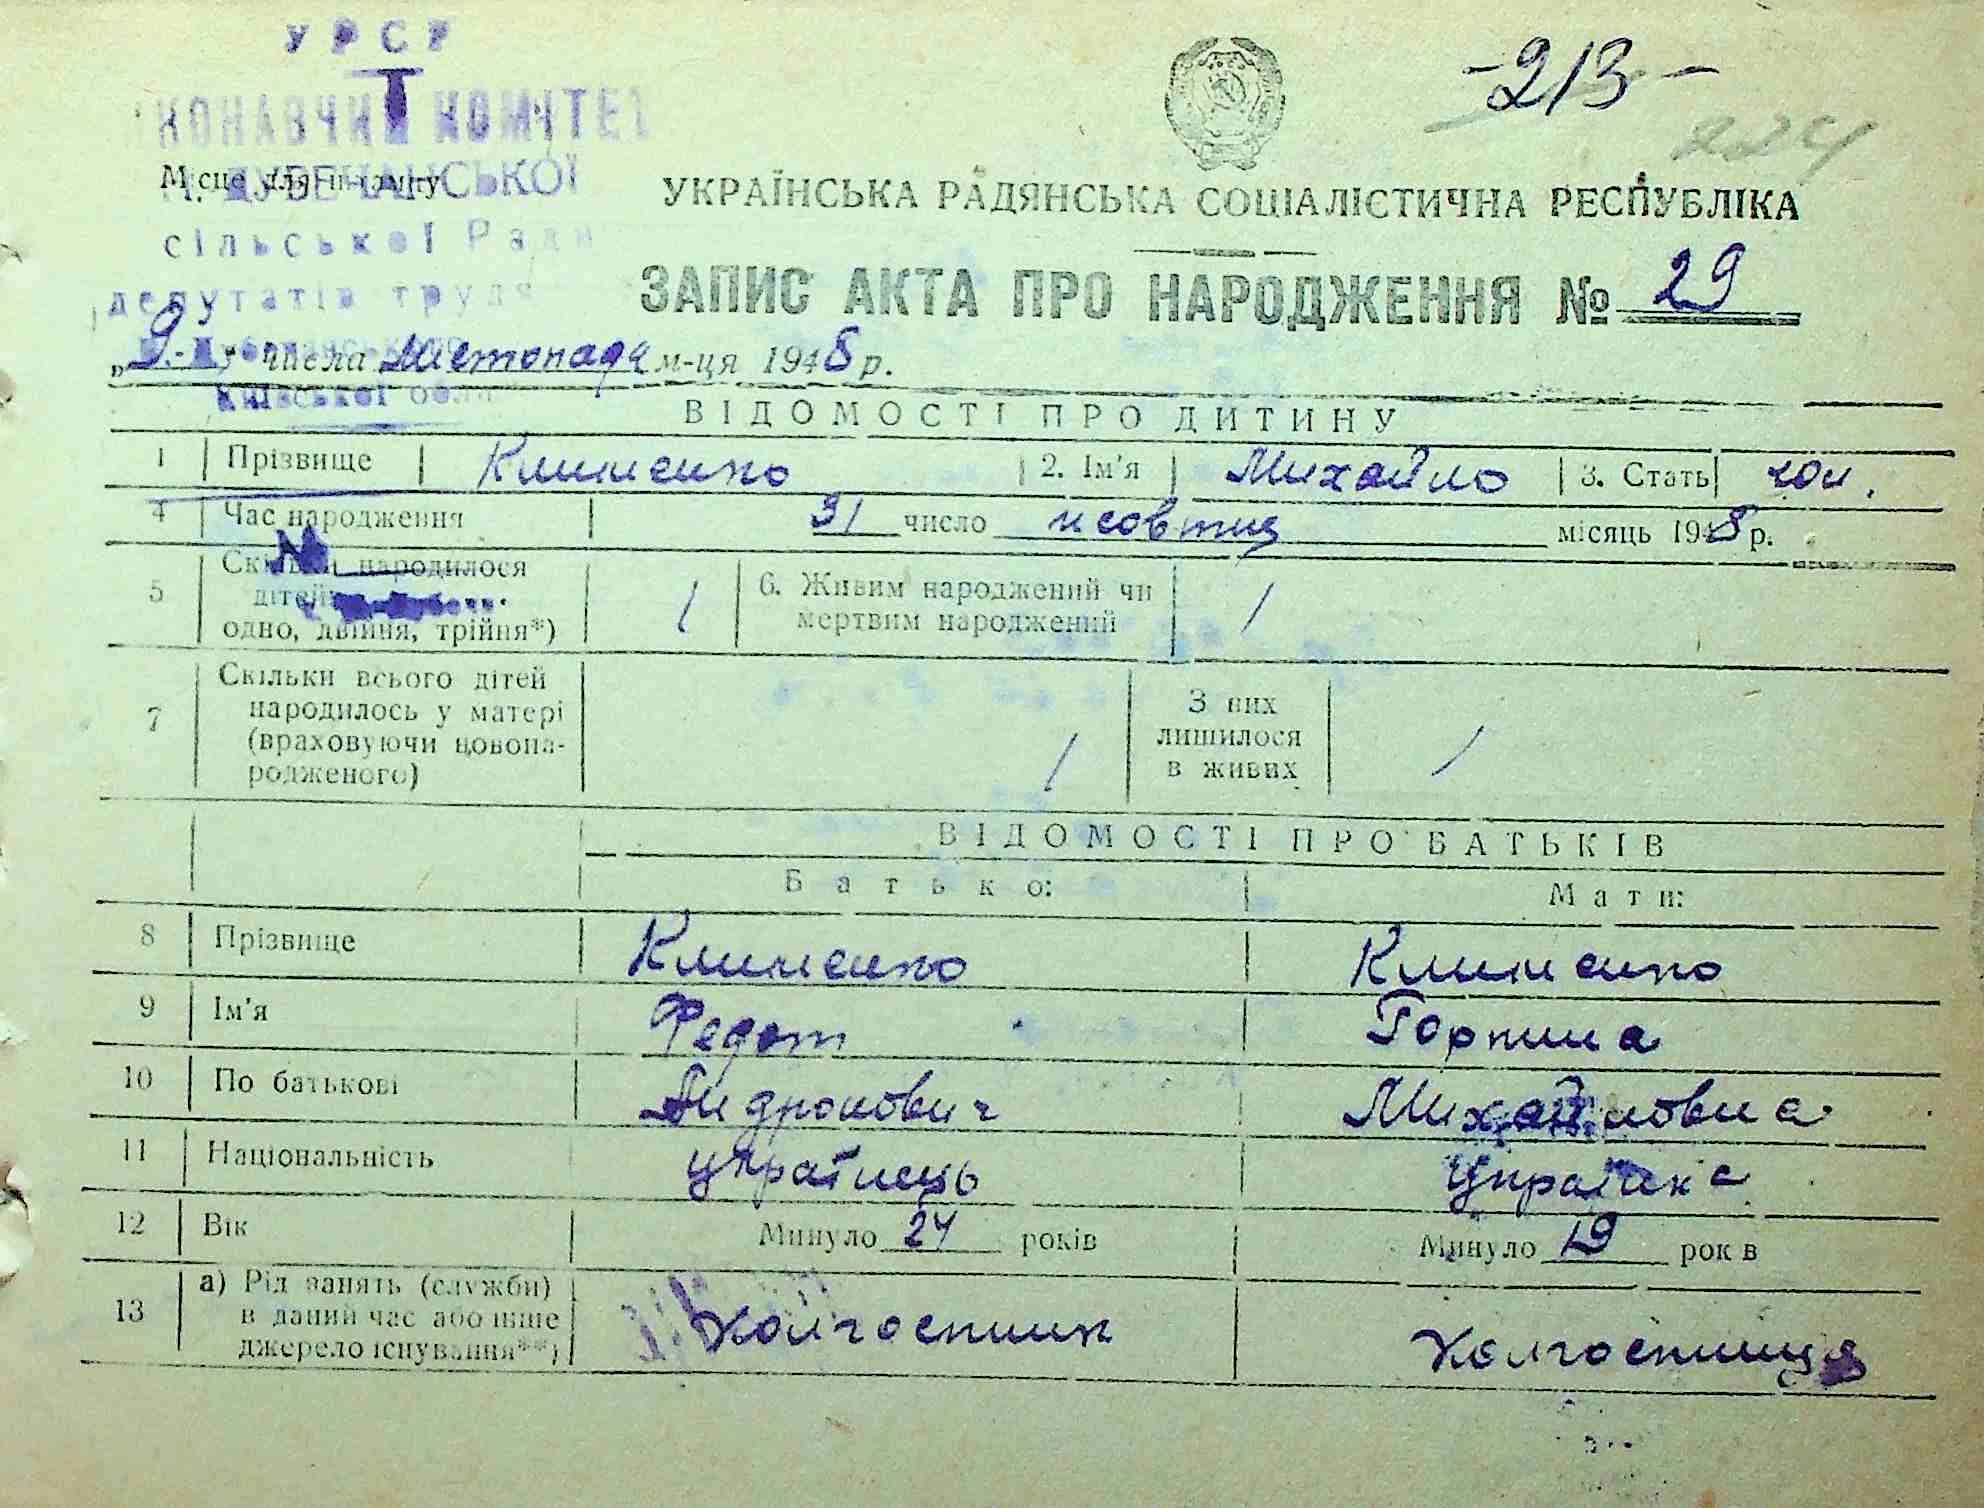 УРСР
КОНАВЧИЙ КОМІТЕТ
-213-
224
Місце для штампу
ДУБЕЧАНСЬКОЇ
УКРАЇНСЬКА РАДЯНСЬКА СОЦІАЛІСТИЧНА РЕСПУБЛІКА
сільської Ради
депутатів трудя
ЗАПИС АКТА ПРО НАРОДЖЕННЯ № 29
„9" числа листопада м-ця 1948 р.
Київської обл
ВІДОМОСТІ ПРО ДИТИНУ
1 Прізвище Клименко 2. Ім'я Михайло 3. Стать чол.
4 Час народження 31 число жовтня місяць 1948 р.
№
5 Скільки народилося дітей: одно, двійня, трійня*) 1 6. Живим народжений чи мертвим народжений 1
7 Скільки всього дітей народилось у матері (враховуючи новонародженого) 1 З них лишилося в живих 1
ВІДОМОСТІ ПРО БАТЬКІВ
Батько: Мати:
8 Прізвище Клименко Клименко
9 Ім'я Федот Горпина
10 По батькові Андронович Михайловна
11 Національність українець українка
12 Вік Минуло 24 років Минуло 19 років
13 а) Рід занять (служби) в даний час або інше джерело існування**) колгоспник колгоспниця